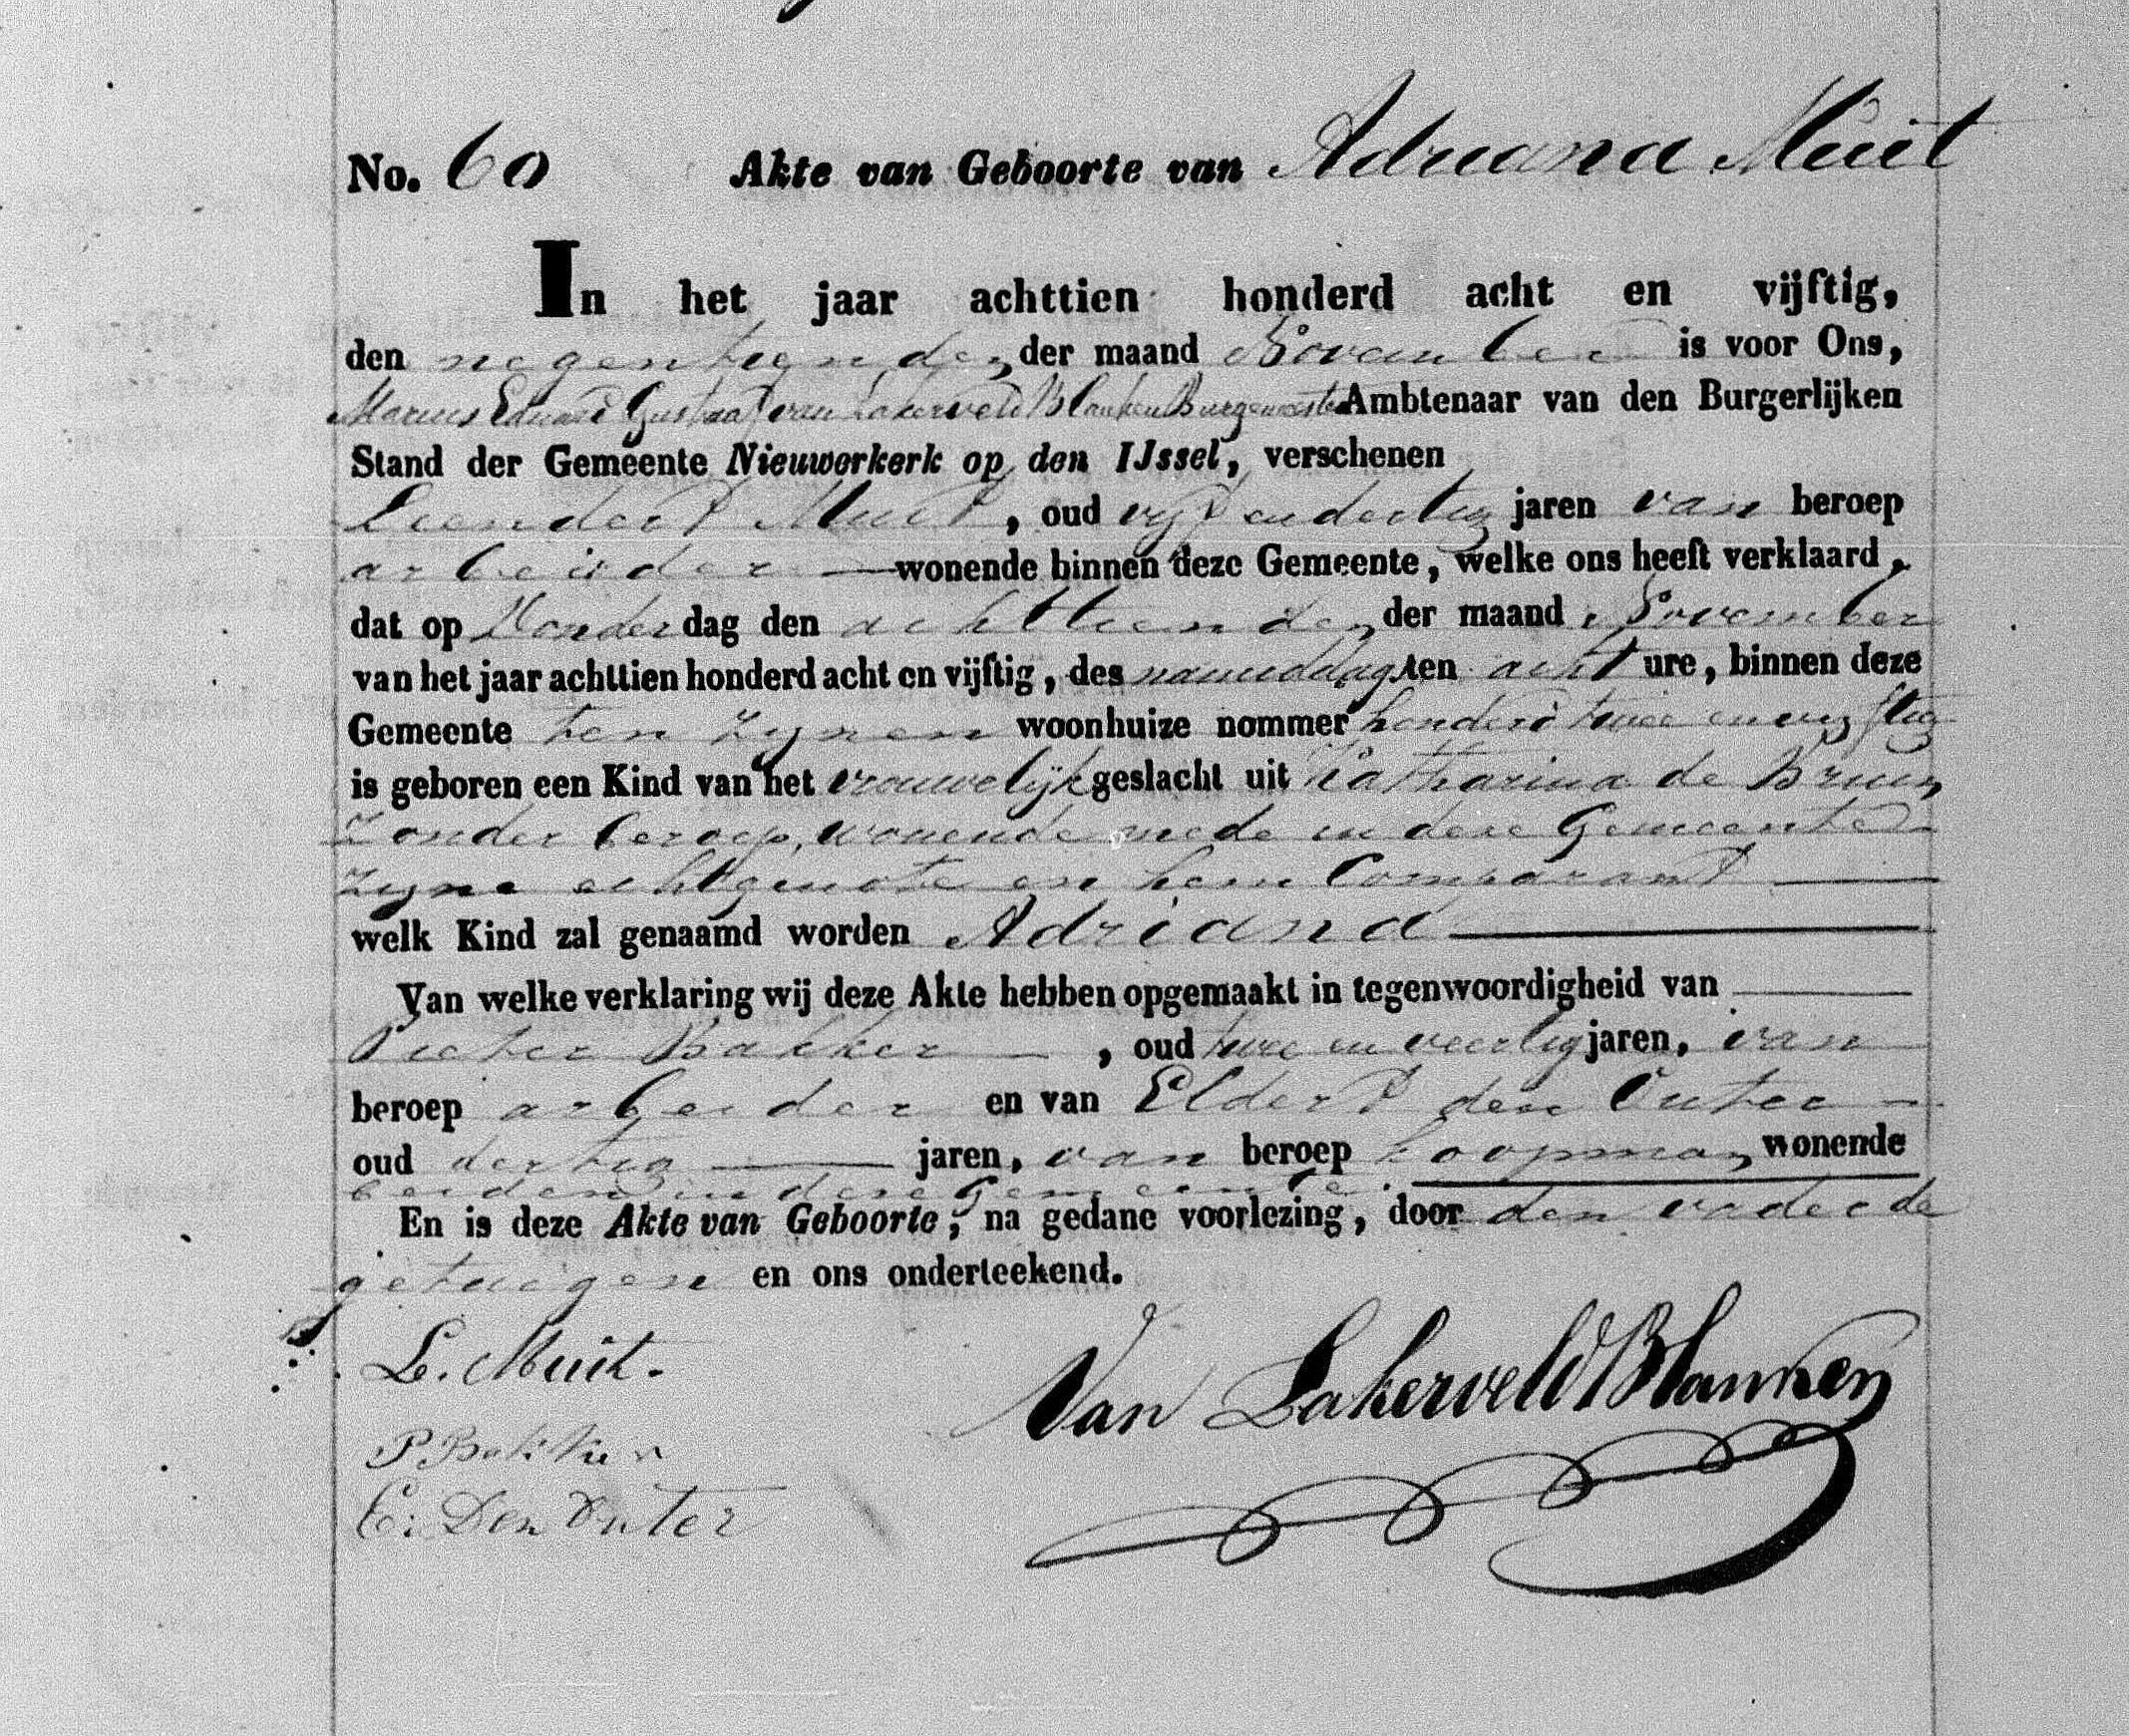 No. 60 Akte van Geboorte van Adriana Muit
In het jaar achttien honderd acht en vijftig,
den negentienden der maand November is voor Ons,
Marius Eduard Gustaaf van Lakerveld Blanken Burgemeester Ambtenaar van den Burgerlijken
Stand der Gemeente Nieuwerkerk op den IJssel, verschenen
Leendert Muit, oud vijf en dertig jaren van beroep
arbeider — wonende binnen deze Gemeente, welke ons heeft verklaard,
dat op Donderdag den achttienden der maand November
van het jaar achttien honderd acht en vijftig, des namiddags ten acht ure, binnen deze
Gemeente ten zynen woonhuize nommer honderd twee en vijftig
is geboren een Kind van het vrouwelijk geslacht uit Catharina de Bruin,
zonder beroep, wonende mede in deze Gemeente
zyne echtgenote en hem Comparant —
welk Kind zal genaamd worden Adriana —
Van welke verklaring wij deze Akte hebben opgemaakt in tegenwoordigheid van —
Pieter Bakker —, oud twee en veertig jaren, van
beroep arbeider en van Eldert den Outer —
oud dertig — jaren, van beroep koopman, wonende
beiden in deze Gemeente. —
En is deze Akte van Geboorte, na gedane voorlezing, door den vader de
getuigen en ons onderteekend.
L. Muit.
Van Lakerveld Blanken
P Bakker
E. Den Outer